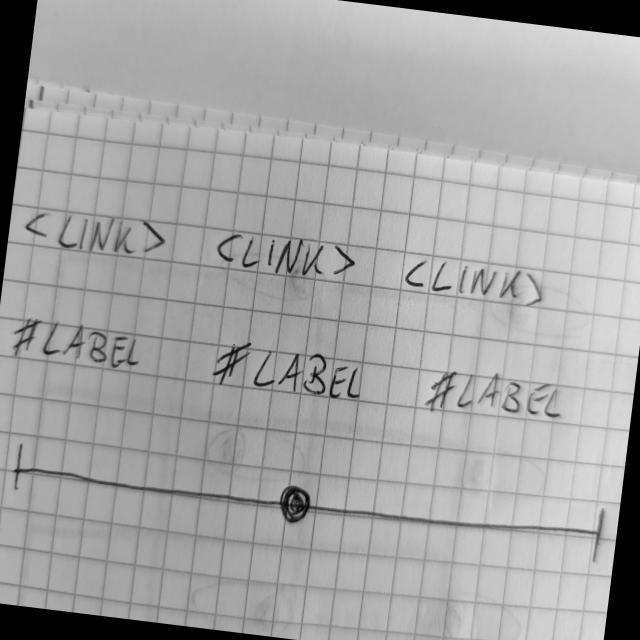 <LINK> <LINK> <LINK>
#LABEL #LABEL #LABEL